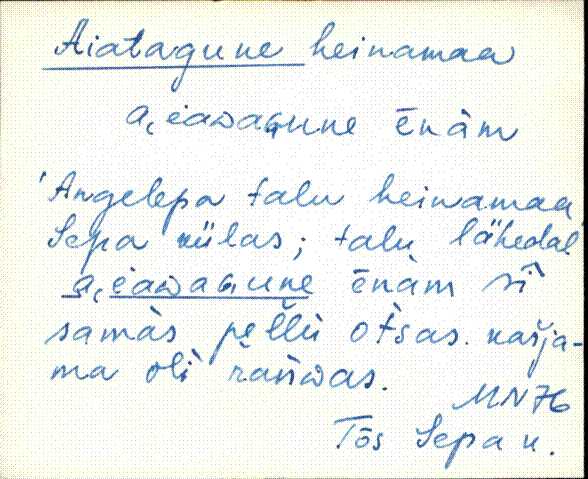 Aiatagune heinamaa
aiəaᴅaɢune ēnàm
'Angelepa talu heinamaa
Sepa külas; talu lähedal'
aiəaᴅaɢune ēnàm sī̀
samàs pellù otsas. kaŕja-
ma oli rańᴅas.
MN76
Tõs Sepa k.